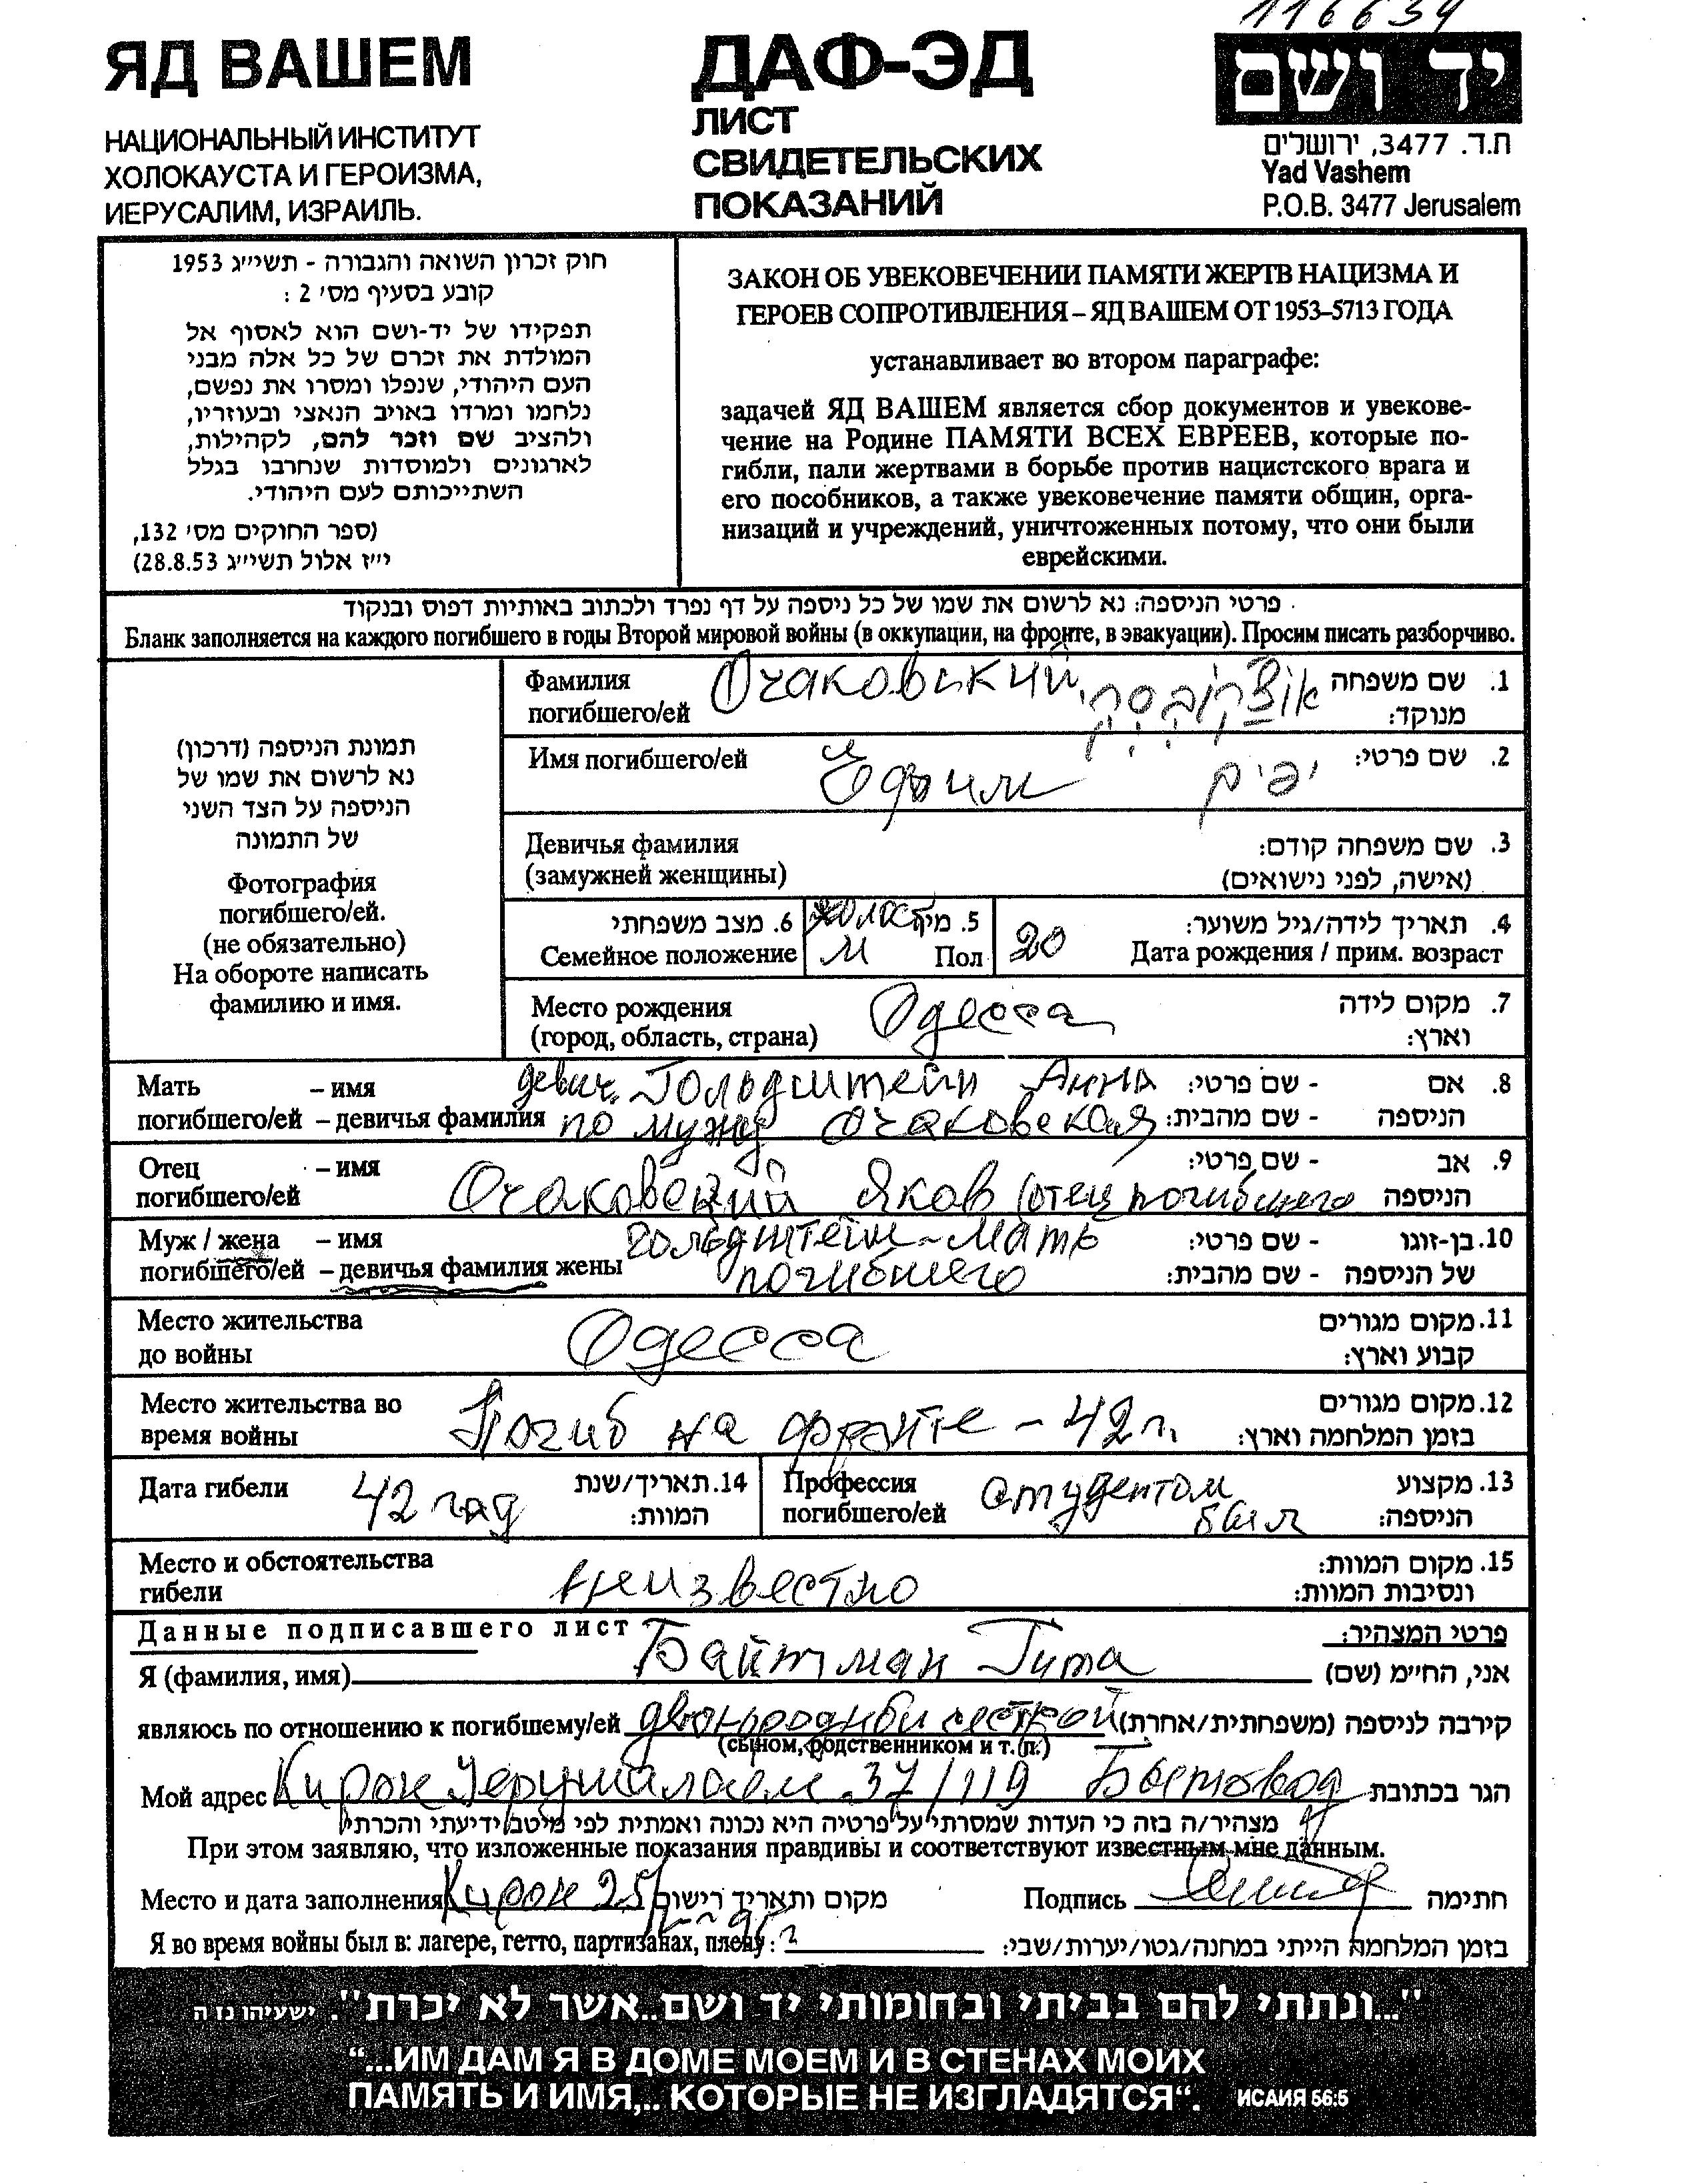 116634
ЯД ВАШЕМ
НАЦИОНАЛЬНЫЙ ИНСТИТУТ
ХОЛОКАУСТА И ГЕРОИЗМА,
ИЕРУСАЛИМ, ИЗРАИЛЬ.
ДАФ-ЭД
ЛИСТ
СВИДЕТЕЛЬСКИХ
ПОКАЗАНИЙ
יד ושם
ת.ד. 3477, ירושלים
Yad Vashem
P.O.B. 3477 Jerusalem
חוק זכרון השואה והגבורה - תשי״ג 1953
קובע בסעיף מס׳ 2 :
תפקידו של יד-ושם הוא לאסוף אל
המולדת את זכרם של כל אלה מבני
העם היהודי, שנפלו ומסרו את נפשם,
נלחמו ומרדו באויב הנאצי ובעוזריו,
ולהציב שם וזכר להם, לקהילות,
לארגונים ולמוסדות שנחרבו בגלל
השתייכותם לעם היהודי.
(ספר החוקים מס׳ 132,
י״ז אלול תשי״ג 28.8.53)
ЗАКОН ОБ УВЕКОВЕЧЕНИИ ПАМЯТИ ЖЕРТВ НАЦИЗМА И
ГЕРОЕВ СОПРОТИВЛЕНИЯ – ЯД ВАШЕМ ОТ 1953–5713 ГОДА
устанавливает во втором параграфе:
задачей ЯД ВАШЕМ является сбор документов и увекове-
чение на Родине ПАМЯТИ ВСЕХ ЕВРЕЕВ, которые по-
гибли, пали жертвами в борьбе против нацистского врага и
его пособников, а также увековечение памяти общин, орга-
низаций и учреждений, уничтоженных потому, что они были
еврейскими.
פרטי הניספה: נא לרשום את שמו של כל ניספה על דף נפרד ולכתוב באותיות דפוס ובנקוד
Бланк заполняется на каждого погибшего в годы Второй мировой войны (в оккупации, на фронте, в эвакуации). Просим писать разборчиво.
תמונת הניספה (דרכון)
נא לרשום את שמו של
הניספה על הצד השני
של התמונה
Фотография
погибшего/ей.
(не обязательно)
На обороте написать
фамилию и имя.
Фамилия Очаковский 1. שם משפחה
погибшего/ей מנוקד:
Имя погибшего/ей Ефим יפים 2. שם פרטי:
Девичья фамилия 3. שם משפחה קודם:
(замужней женщины) (אישה, לפני נישואים)
6. מצב משפחתי холост 5. מין 4. תאריך לידה/גיל משוער:
Семейное положение М Пол 20 Дата рождения / прим. возраст
Место рождения Одесса 7. מקום לידה
(город, область, страна) וארץ:
Мать – имя девич. Гольдштейн Анна 8. אם - שם פרטי:
погибшего/ей – девичья фамилия по мужу Очаковская הניספה - שם מהבית:
Отец – имя 9. אב - שם פרטי:
погибшего/ей Очаковский Яков (отец погибшего הניספה
Муж / жена – имя Гольдштейн – мать 10. בן-זוגו - שם פרטי:
погибшего/ей – девичья фамилия жены погибшего של הניספה - שם מהבית:
Место жительства Одесса 11. מקום מגורים
до войны קבוע וארץ:
Место жительства во Погиб на фронте – 42 г. 12. מקום מגורים
время войны בזמן המלחמה וארץ:
Дата гибели 42 год 14. תאריך/שנת
המוות:
Профессия студентом 13. מקצוע
погибшего/ей был הניספה:
Место и обстоятельства неизвестно 15. מקום המוות:
гибели ונסיבות המוות:
Данные подписавшего лист פרטי המצהיר:
Я (фамилия, имя) Байтман Гита אני, הח״מ (שם)
являюсь по отношению к погибшему/ей сестрой קירבה לניספה (משפחתית/אחרת)
(сыном, родственником и т. п.)
Мой адрес Кирон Уерушалаем 37/119 הגר בכתובת
מצהיר/ה בזה כי העדות שמסרתי על פרטיה היא נכונה ואמתית לפי מיטב ידיעתי והכרתי
При этом заявляю, что изложенные показания правдивы и соответствуют известным мне данным.
Место и дата заполнения Кирон 25 מקום ותאריך רישום Подпись חתימה
Я во время войны был в: лагере, гетто, партизанах, плену: בזמן המלחמה הייתי במחנה/גטו/יערות/שבי:
"...ונתתי להם בביתי ובחומותי יד ושם..אשר לא יכרת". ישעיהו נז ה
“...ИМ ДАМ Я В ДОМЕ МОЕМ И В СТЕНАХ МОИХ
ПАМЯТЬ И ИМЯ,.. КОТОРЫЕ НЕ ИЗГЛАДЯТСЯ“. ИСАИЯ 56:5